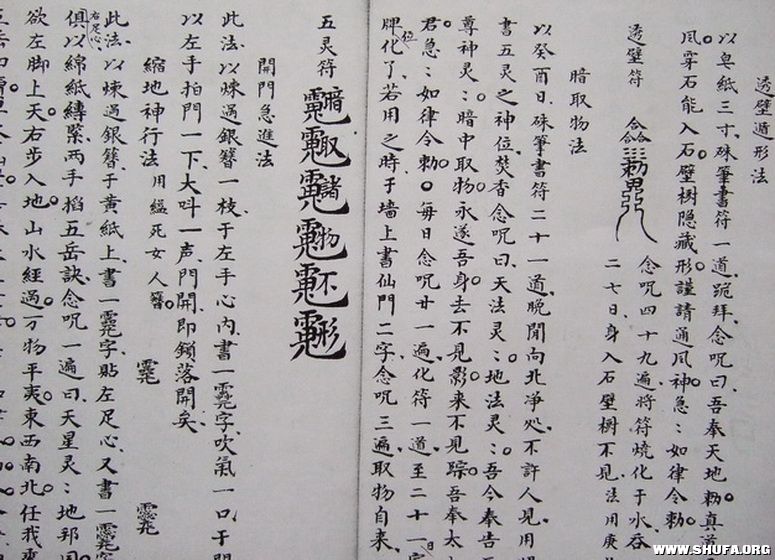 透壁遁形法
以皂紙三寸硃筆書符一道跪拜念咒曰吾奉天地勑真道
風穿石能入石壁樹隐藏形謹請通風神急:如律令勅
透壁符
念咒四十九遍將符燒化于水吞
二七日身入石壁樹不見法用庚
暗取物法
以癸酉日硃筆書符二十一道晚間向北净処不許人見用
書五灵之神位焚香念咒曰天法灵:地法灵:吾今奉告
尊神灵:暗中取物永遂吾身去不見影来不見踪吾奉太
君急:如律令勅每日念咒廿一遍化符一道至二十一
位牌化了若用之時于墙上書仙門二字念咒三遍取物自来
五灵符
暗取諸物不形
開門急進法
此法以煉過銀簪一枝于左手心内書一字吹氣一口于門
以左手拍門一下大呌一声門開即鎖落開矣
縮地神行法 用縊死女人簪
此法以煉過銀簪于黄紙上書一字貼左足心又書一字
右足心
俱以綿紙縳緊两手掐五岳訣念咒一遍曰天星灵:地邦
欲左脚上天右步入地山水經過万物平夷東西南北任我
WWW.SHUFA.ORG